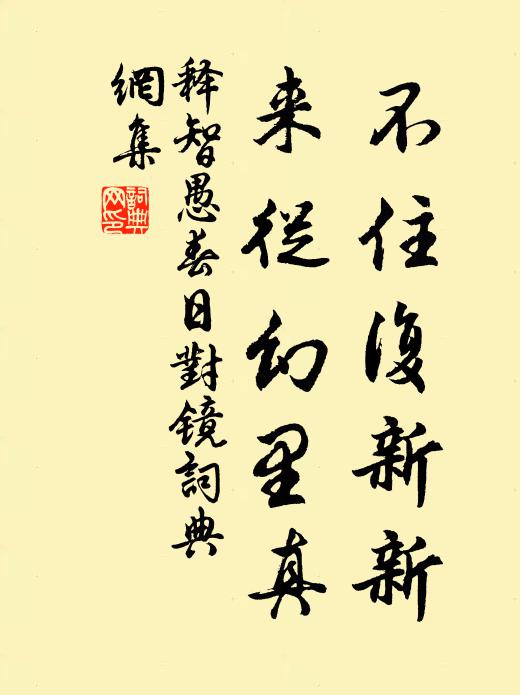 不住復新新
来從幻里真
释智愚春日對镜詞典
網集
詞典
网印